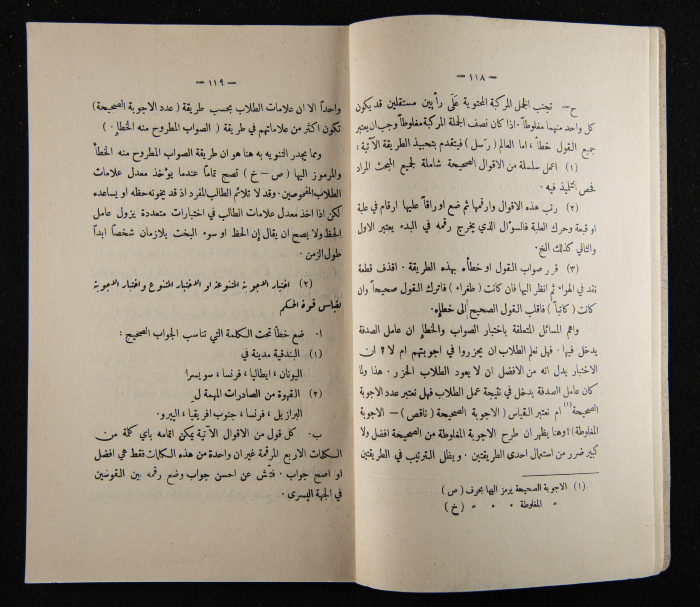 — ١١٨ —
ح — تجنب الجمل المركبة المحتوية عَلَى رأيين مستقلين قد يكون
كل واحد منهما مغلوطاً . اذا كان نصف الجملة المركبة مغلوطاً وجب ان يعتبر
جميع القول خطأ ، اما العالم ( رَسل ) فيتقدم بتحبيذ الطريقة الآتية :
(١) اعمل سلسلة من الاقوال الصحيحة شاملة لجميع المبحث المراد
فحص التلميذ فيه .
(٢) رتب هذه الاقوال وارقمها ثم ضع اوراقاً عليها ارقام في علبة
او قبعة وحرك العلبة فالسؤال الذي يخرج رقمه في البدء يعتبر الاول
والثاني كذلك الخ .
(٣) قرر صواب القول او خطأه بهذه الطريقة . اقذف قطعة
نقد في الهواء ثم انظر اليها فان كانت ( طغراء ) فاترك القول صحيحاً وان
كانت ( كتابا ) فاقلب القول الصحيح إلى خطإِ .
واهم المسائل المتعلقة باختبار الصواب والخطإِ ان عامل الصدفة
يدخل فيها . فهل نعلم الطلاب ان يحزروا في اجوبتهم ام لا ? ان
الاختبار يدل انه من الافضل ان لا يعود الطلاب الحزر . هذا ولما
كان عامل الصدفة يدخل في نتيجة عمل الطلاب فهل نعتبر عدد الاجوبة
الصحيحة (١) ام نعتبر القياس ( الاجوبة الصحيحة ( ناقص ) — الاجوبة
المغلوطة ) وهنا يظهر ان طرح الاجوبة المغلوطة من الصحيحة افضل ولا
كبير ضرر من استعمال احدى الطريقتين . ويظل الترتيب في الطريقتين
(١) الاجوبة الصحيحة يرمز اليها بحرف ( ص )
" المغلوطة " " " ( خ )
— ١١٩ —
واحداً الا ان علامات الطلاب بحسب طريقة ( عدد الاجوبة الصحيحة )
تكون اكثر من علاماتهم في طريقة ( الصواب المطروح منه الخطإِ . )
ومما يجدر التنويه به هنا هو ان طريقة الصواب المطروح منه الخطأ
والمرموز اليها ( ص — خ ) تصح تماماً عندما يؤخذ معدل علامات
الطلاب المفحوصين . وقد لا تلائم الطالب المفرد اذ قد يخونه حظه او يساعده
لكن اذا اخذ معدل علامات الطالب في اختبارات متعددة يزول عامل
الحظ ولا يصح ان يقال إن الحظ او سوء البخت يلازمان شخصاً ابداً
طول الزمن .
(٢) اختبار الاجوبة المتنوعة او الاختبار المتنوع واختبار الاجوبة
لقياس قوة الحكم
ا . ضع خطاً تحت الكلمة التي تناسب الجواب الصحيح :
(١) البندقية مدينة في
اليونان ، ايطاليا ، فرنسا ، سويسرا
(٢) القهوة من الصادرات المهمة لِ
البرازيل ، فرنسا ، جنوب افريقيا ، البيرو .
ب . كل قول من الاقوال الآتية يمكن اتمامه باي كلمة من
الكلمات الاربع المرقمة غير ان واحدة من هذه الكلمات فقط هي افضل
او اصح جواب . فتّش عن احسن جواب وضع رقمه بين القوسين
في الجهة اليسرى .